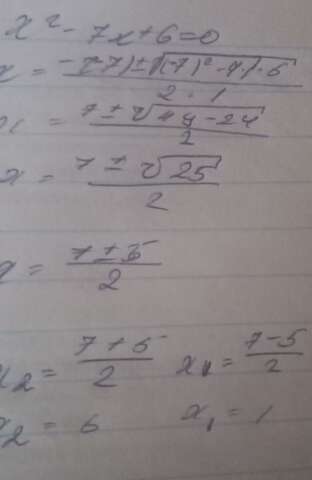 x² - 7x + 6 = 0
x = -(-7) ± √(-7)² - 4·1·6 / 2·1
x = 7 ± √49 - 24 / 2
x = 7 ± √25 / 2
x = 7 ± 5 / 2
x₂ = 7 + 5 / 2   x₁ = 7 - 5 / 2
x₂ = 6   x₁ = 1